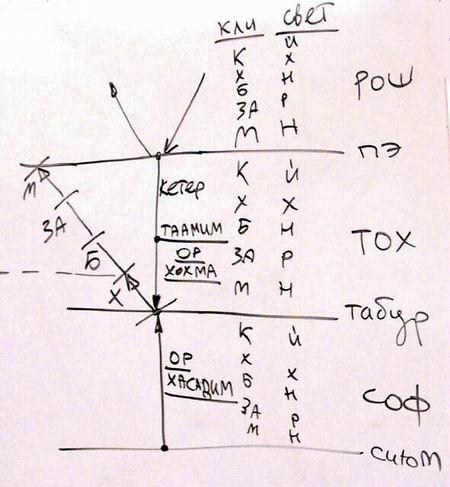 КЛИ СВЕТ
К Й
Х Х
Б Н
ЗА Р
М Н
РОШ
ПЭ
К Й
Х Х
Б Н
ЗА Р
М Н
КЕТЕР
ТААМИМ
ОР
ХОХМА
ТОХ
М
ЗА
Б
Х
Табур
К Й
Х Х
Б Н
ЗА Р
М Н
ОР
ХАСАДИМ
СОФ
СИЮМ